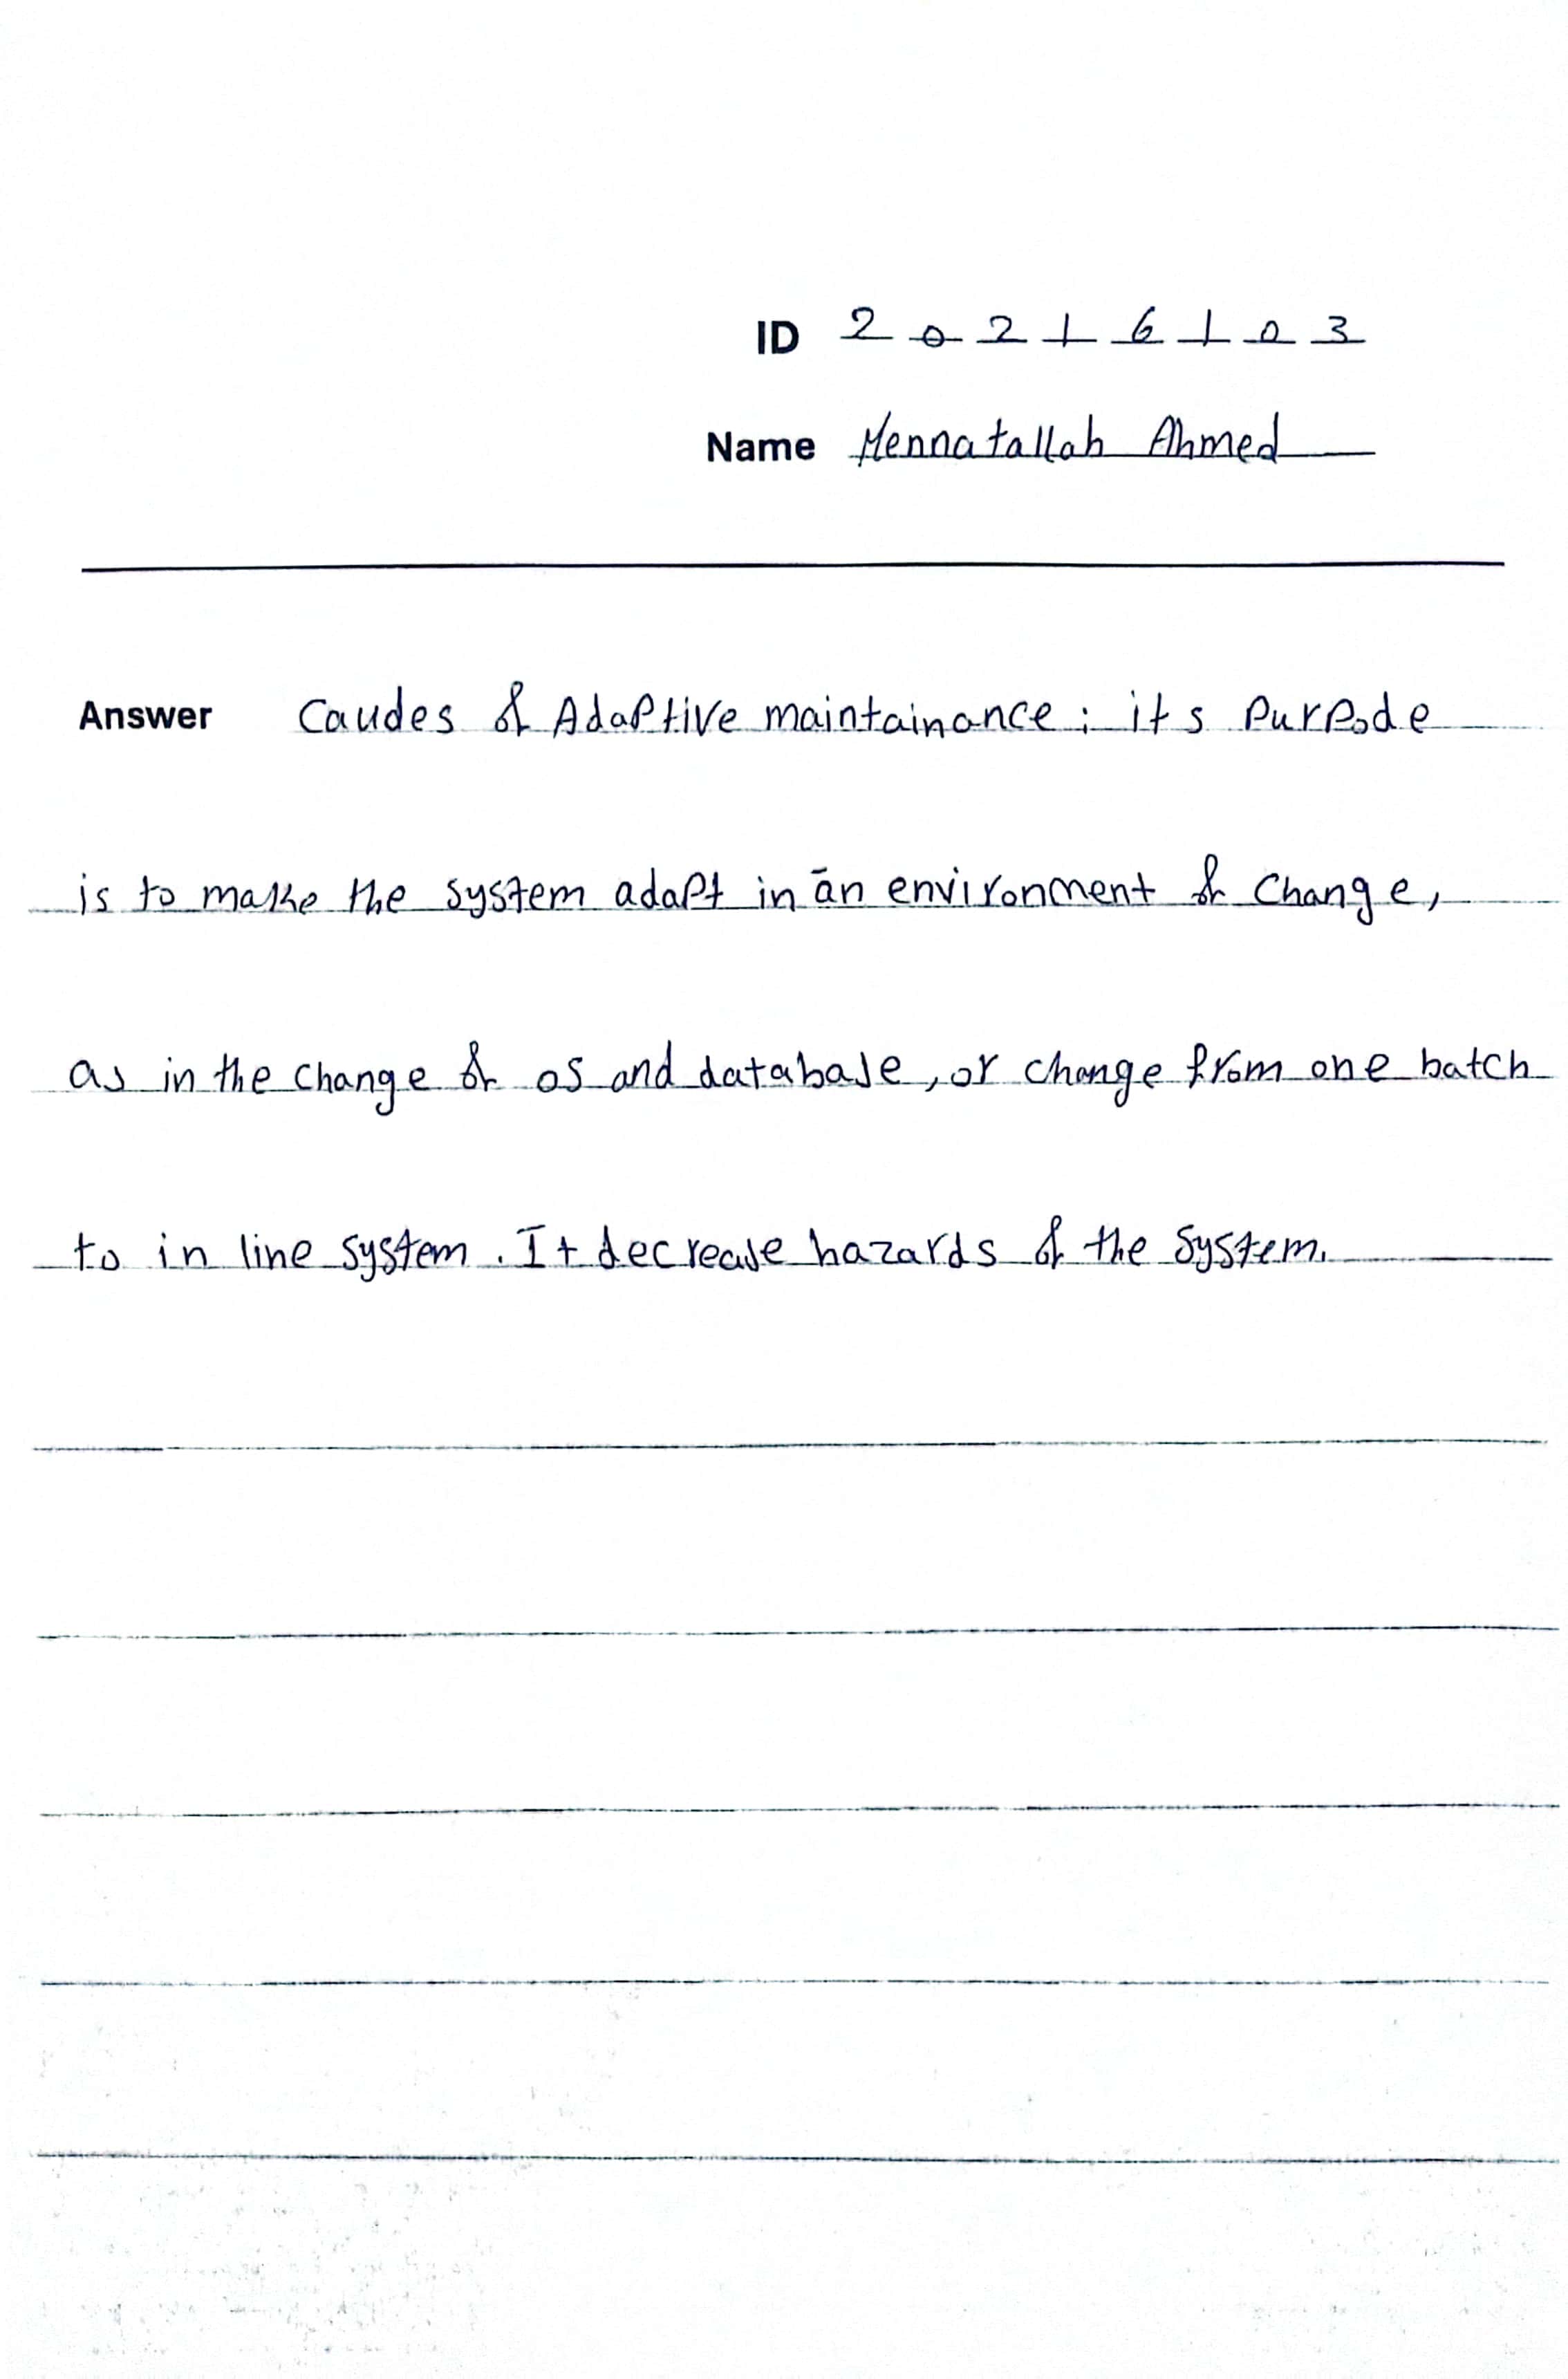 ID 20216103
Name Mennatallah Ahmed
Answer Caudes of Adaptive maintainance: its Purpode
is to make the system adapt in an environment of Change,
as in the change of os and database, or change from one batch
to in line system. It decrease hazards of the system.